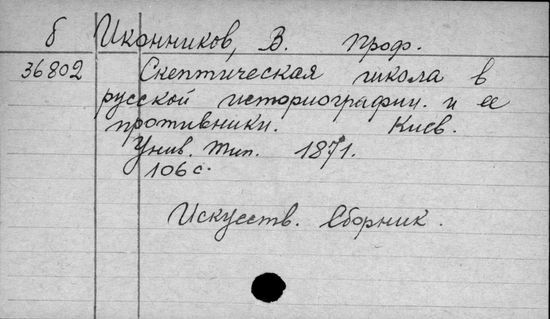 б Иконников, В. проф.
36802 Скептическая школа в
русской историографии. и ее
противники. Киев.
Унив. тип. 1871.
106 с.
Искусств. Сборник.